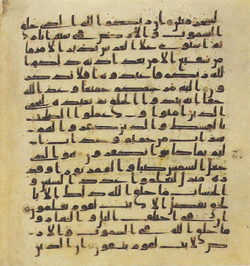 لسحر مبين ان ربكم الله الذي خلق
السموت والارض في ستة ايام
ثم استوى على العرش يدبر الامر ما
من شفيع الا من بعد اذنه ذلكم ا
لله ربكم فاعبدوه افلا تذكرو
ن اليه مرجعكم جميعا وعد الله
حقا انه يبدوا الخلق ثم يعيده
ليجزي الذين امنوا وعملوا الصلحت
بالقسط والذين كفروا لهم
شراب من حميم وعذاب ا
ليم بما كانوا يكفرون هو الذي
جعل الشمس ضيا والقمر نورا و
قدره منازل لتعلموا عدد السنين و
الحساب ما خلق الله ذلك الا با
لحق يفصل الايت لقوم يعلمون
ان في اختلف اليل والنهار وما
خلق الله في السموت والارض
لايت لقوم يتقون ان الذين